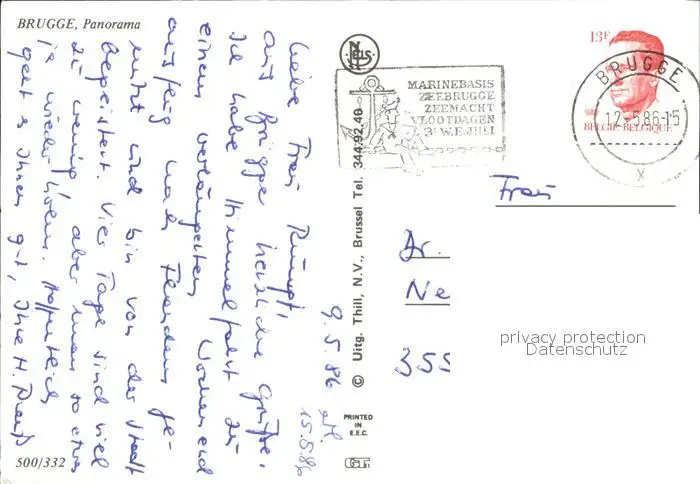 BRUGGE, Panorama
9.5.86
Liebe Frau Rumpf,
aus Brügge herzliche Grüße.
Ich habe Himmelfahrt zu
einem verlängerten Wochenend
ausflug nach Flandern ge-
nutzt und bin von der Stadt
begeistert. Vier Tage sind viel
zu wenig, aber man so etwas
ja wieder holen. Hoffentlich
geht's Ihnen gut, Ihre H.
15.5.86
500/332
© Uitg. Thill, N.V., Brussel Tel. 344.92.40
NELS
PRINTED
IN
E.E.C.
MARINEBASIS
ZEEBRUGGE
ZEEMACHT
VLOOTDAGEN
3e W.E. JULI
13F
BELGIË-BELGIQUE
BRUGGE
12-5.86-15
X
Frau
Dr.
Ne
355
privacy protection
Datenschutz